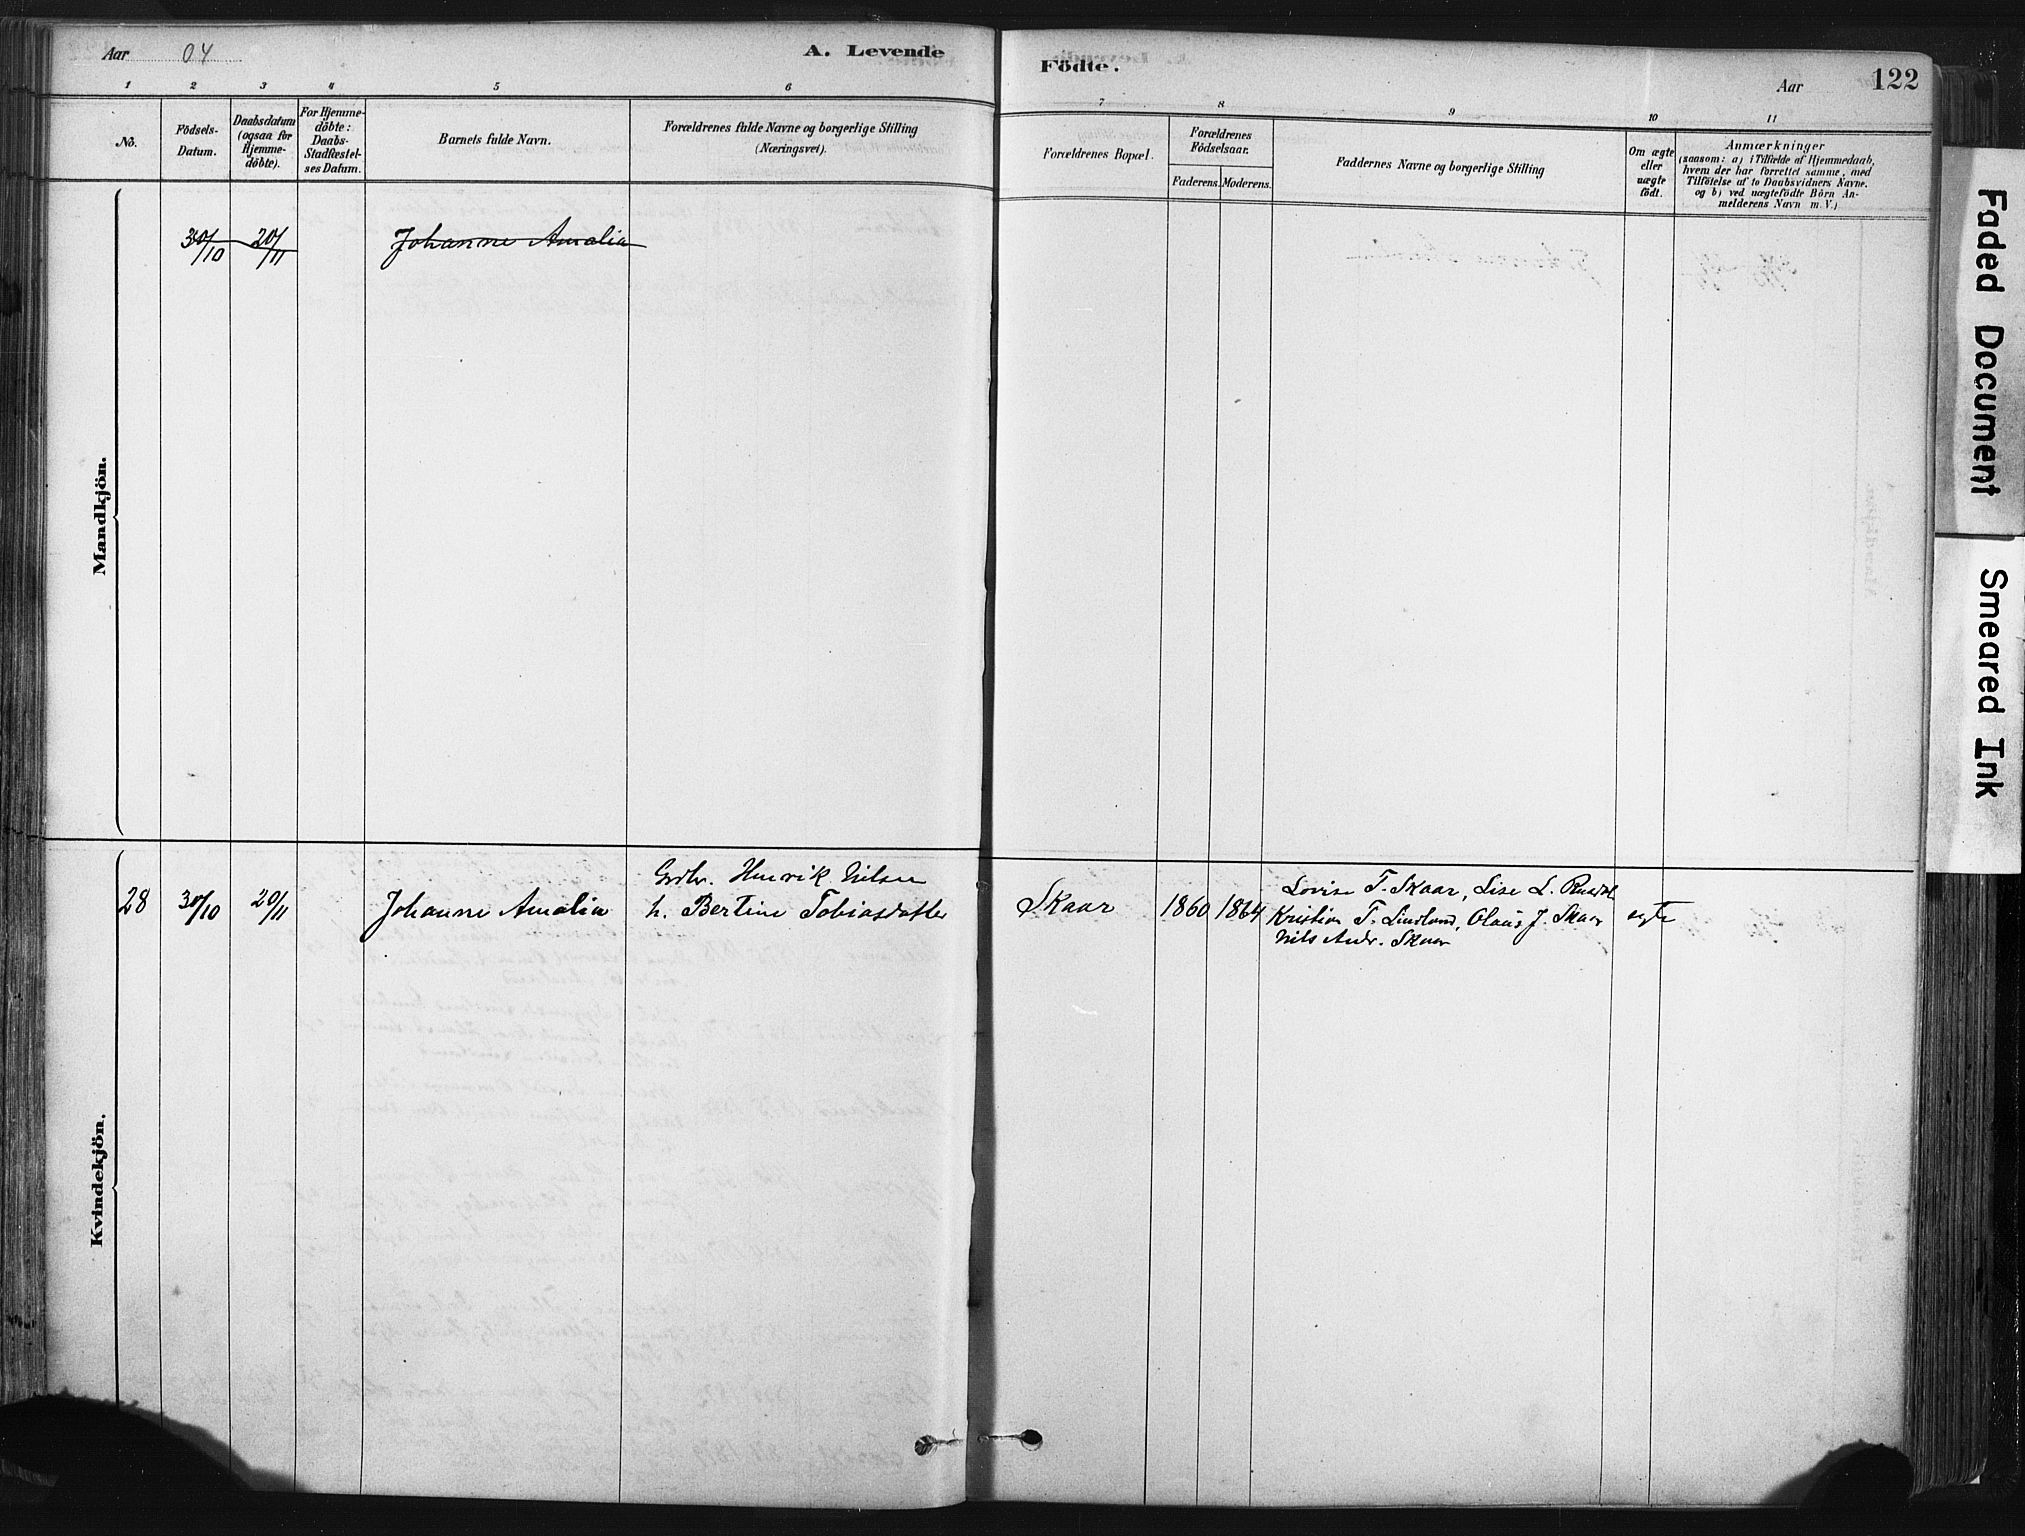 Aar 04
A. Levende
1 2 3 4 5 6
No.
Födsels-
Datum.
Daabsdatum
(ogsaa for
Hjemme-
döbte).
For Hjemme-
döbte:
Daabs-
Stadfæstel-
ses Datum.
Barnets fulde Navn.
Forældrenes fulde Navne og borgerlige Stilling
(Næringsvei).
Mandkjön.
30/10 20/11 Johanne Amalia
Kvindekjön.
28 30/10 20/11 Johanne Amalia
Grdbr. Henrik Nilsen
h. Bertine Tobiasdatter
Födte.
Aar
122
7 8 9 10 11
Forældrenes Bopæl.
Forældrenes
Födselsaar.
Faderens. Moderens.
Faddernes Navne og borgerlige Stilling
Om ægte
eller
uægte
födt.
Anmærkninger
(saasom: a) i Tilfælde af Hjemmedaab,
hvem der har forrettet samme, med
Tilföielse af to Daabsvidners Navne.
og b) ved uægtefödte Börn An-
melderens Navn m. V.)
Skaar 1860 1864
Lovise T. Skaar, Lise L.
Kristian T. Lindland, Olaus J. Skaar
Nils Andr. Skaar
egte
Faded Document
Smeared Ink